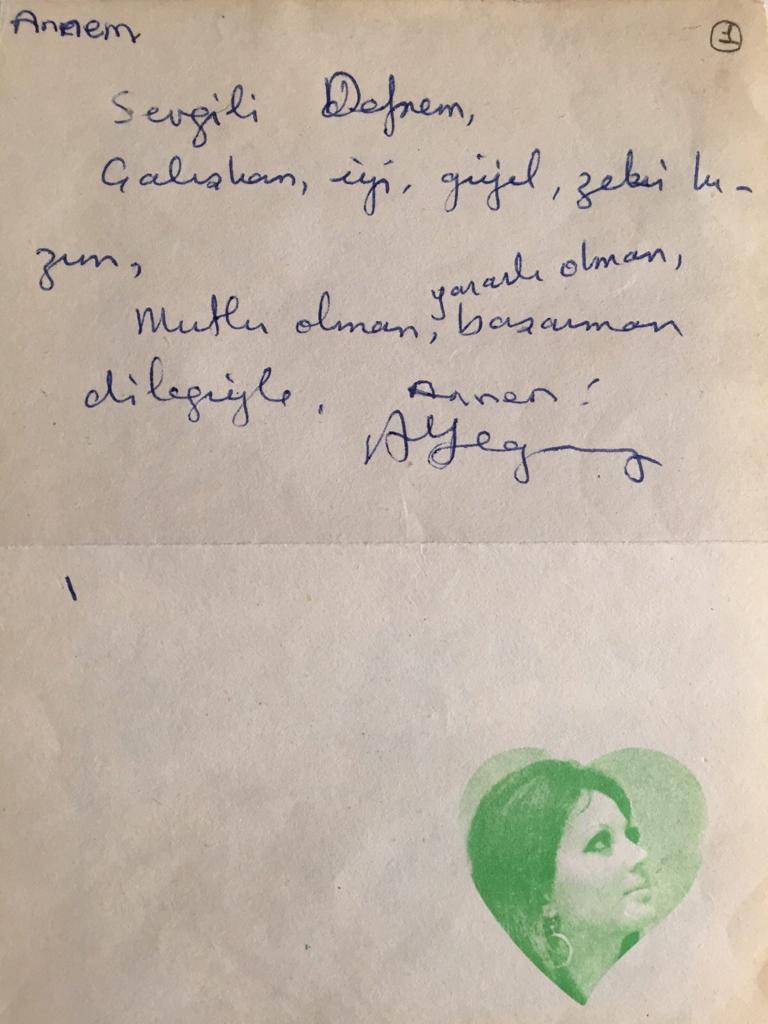 Annem
①
Sevgili Defnem,
Çalışkan, iyi, güzel, zeki kı-
zım,
yararlı olman,
Mutlu olman, başarman
dileğiyle. Annen!